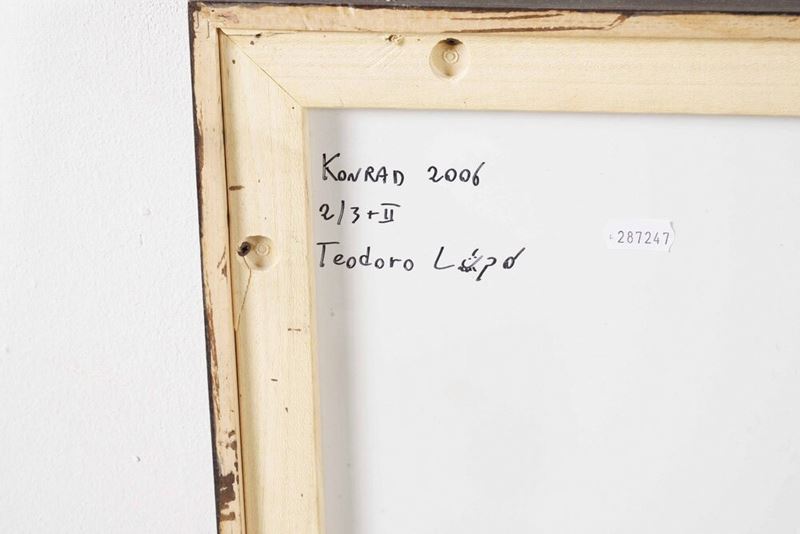 KONRAD 2006
2/3+II
287247
Teodoro